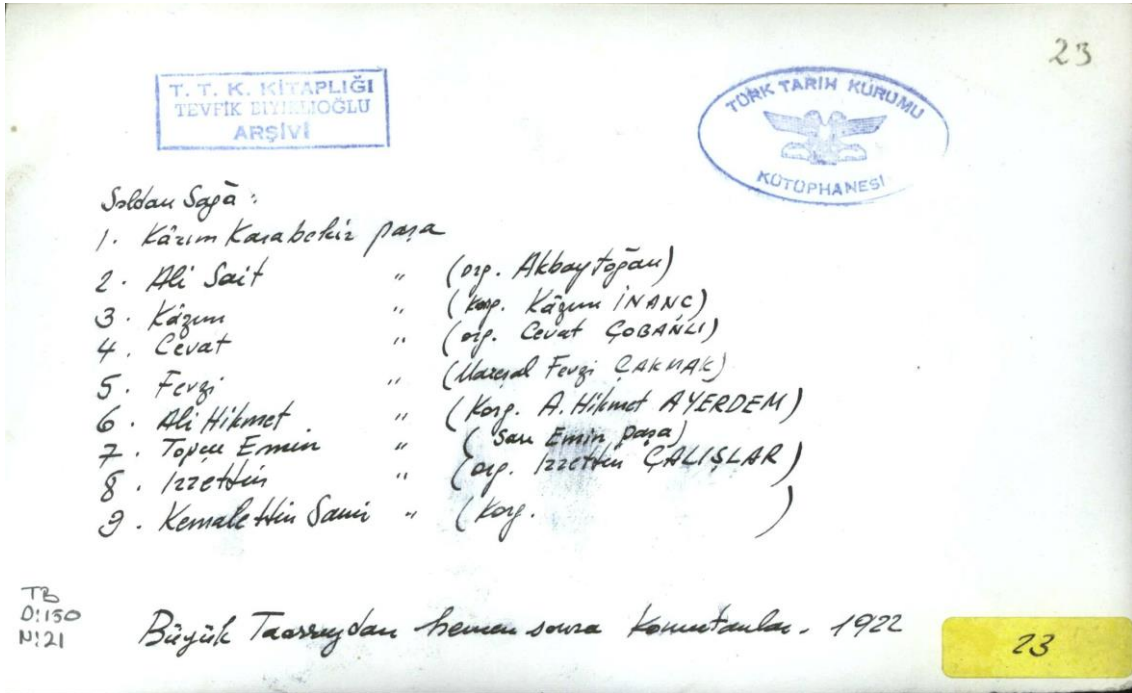 23
T. T. K. KİTAPLIĞI
TEVFİK BIYIKLIOĞLU
ARŞİVİ
TÜRK TARİH KURUMU
KÜTÜPHANESİ
Soldan Sağa :
1. Kâzım Karabekir paşa
2. Ali Sait " (org. Akbaytogan)
3. Kâzım " (Korg. Kâzım İNANÇ)
4. Cevat " (org. Cevat ÇOBANLI)
5. Fevzi " (Mareşal Fevzi ÇAKMAK)
6. Ali Hikmet " (Korg. A. Hikmet AYERDEM)
7. Topçu Emin " (Sarı Emin paşa)
8. İzzettin " (org. İzzettin ÇALIŞLAR)
9. Kemalettin Sami " (Korg. )
TB
D:150
N:21
Büyük Taarruzdan hemen sonra Komutanlar. 1922
23